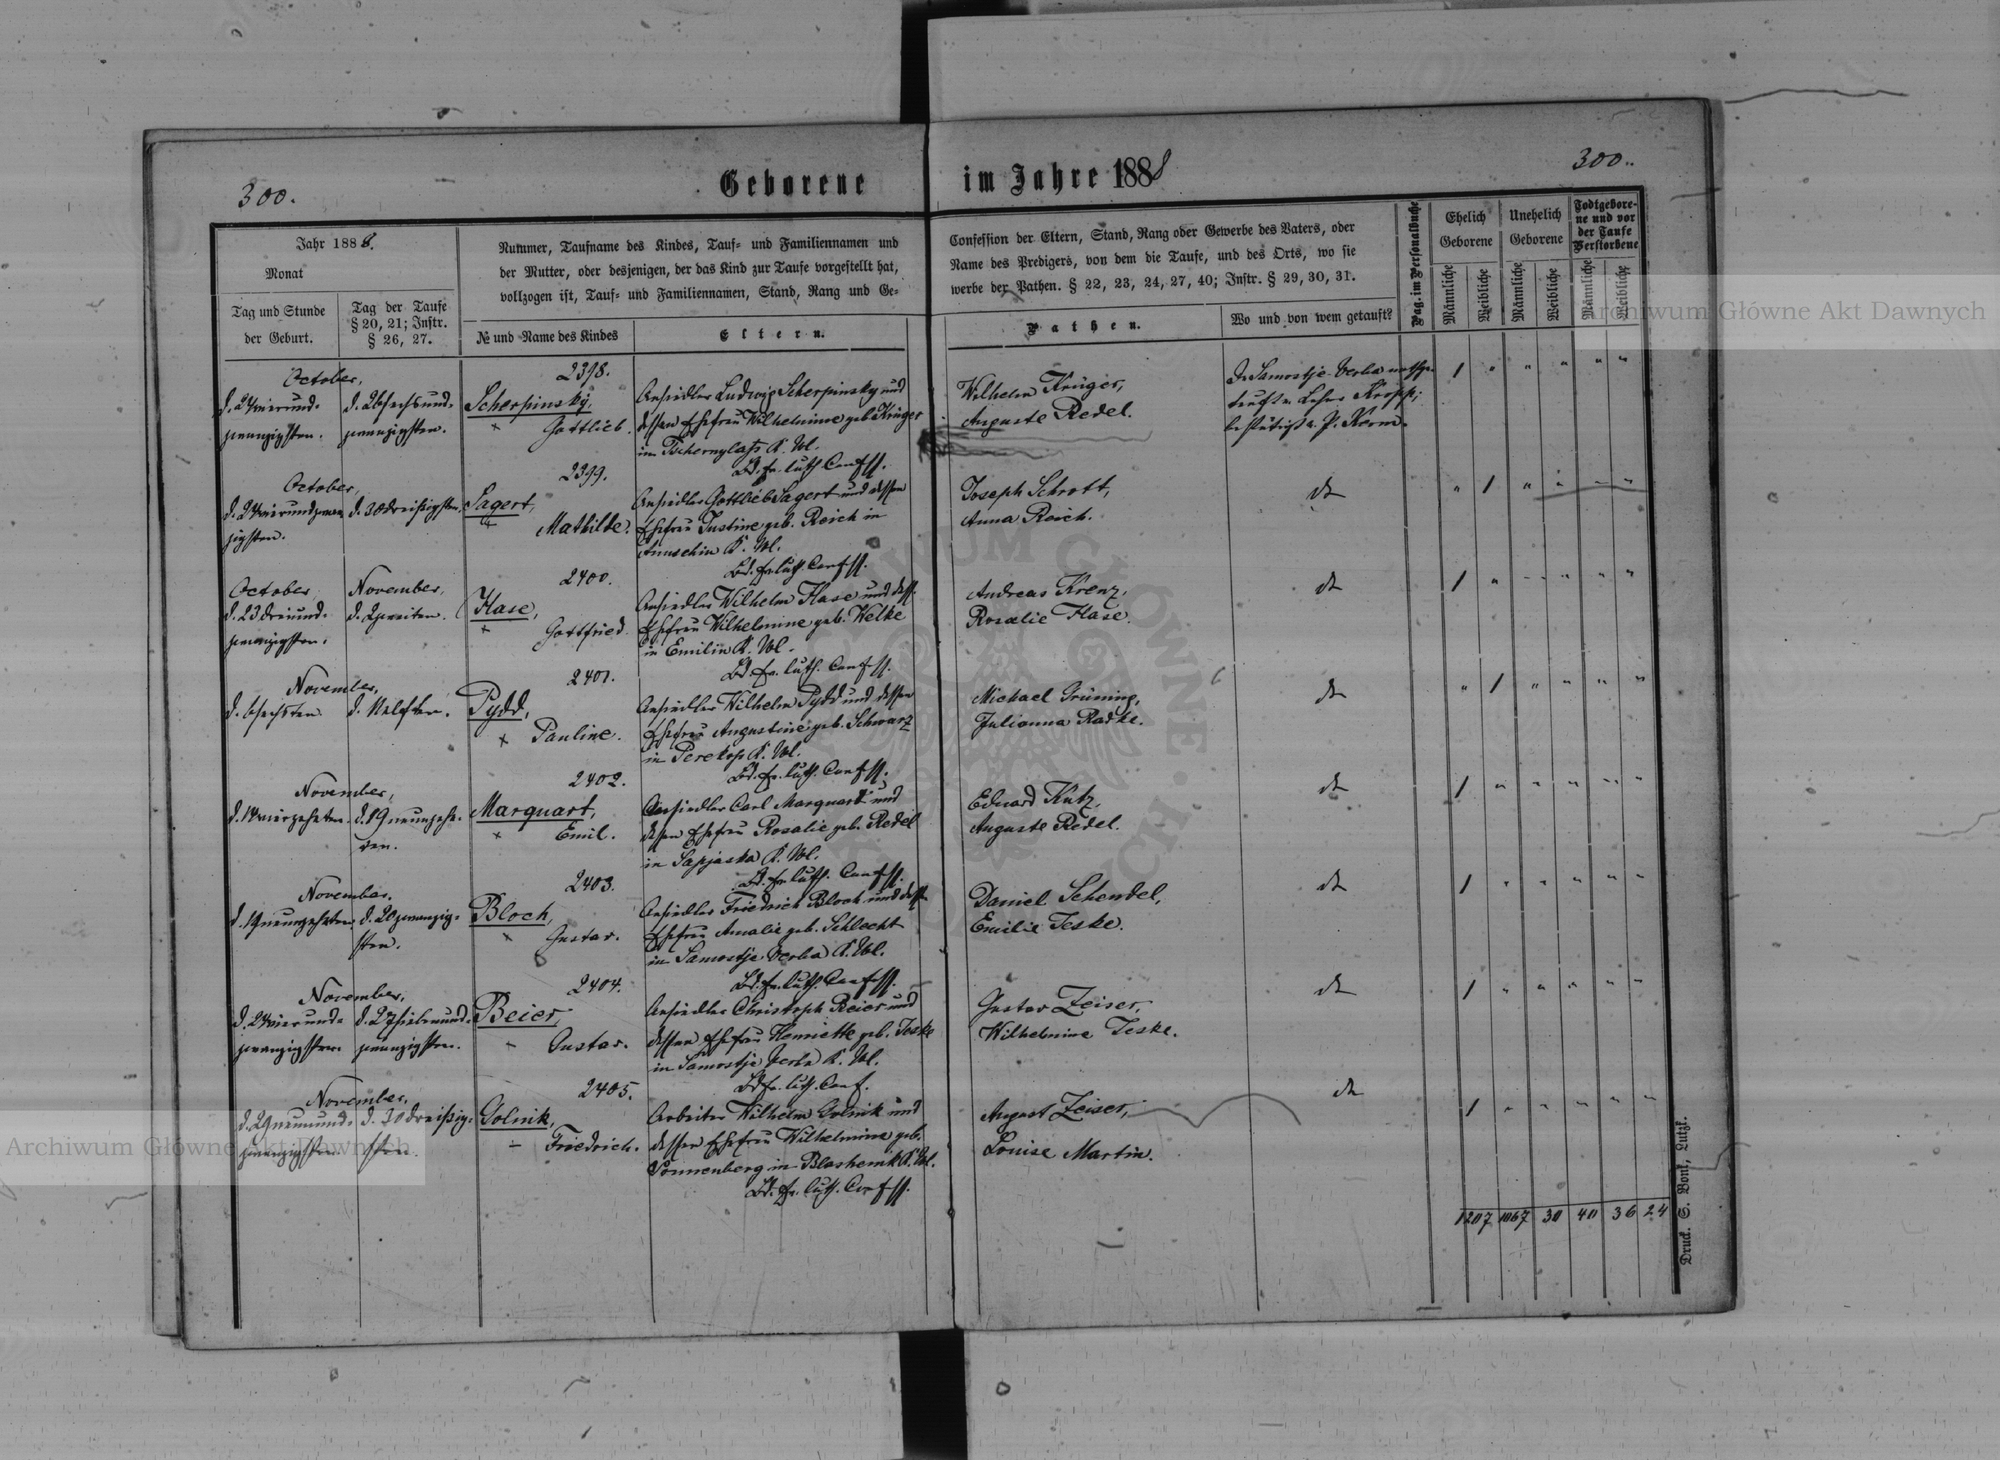 300.
Geborene im Jahre 1888
300.
Jahr 1888.
Monat
Tag und Stunde
der Geburt.
Tag der Taufe
§ 20, 21; Instr.
§ 26, 27.
Nummer, Taufname des Kindes, Tauf= und Familiennamen und
der Mutter, oder desjenigen, der das Kind zur Taufe vorgestellt hat,
vollzogen ist, Tauf= und Familiennamen, Stand, Rang und Ge=
№ und Name des Kindes
Eltern.
Confession der Eltern, Stand, Rang oder Gewerbe des Vaters, oder
Name des Predigers, von dem die Taufe, und des Orts, wo sie
werbe der Pathen. § 22, 23, 24, 27, 40; Instr. § 29, 30, 31.
Pathen.
Wo und von wem getauft?
Pag. im Personalbuche
Ehelich
Geborene
Unehelich
Geborene
Todtgebore=
ne und vor
der Taufe
Verstorbene
Männliche
Weibliche
Männliche
Weibliche
Männliche
Weibliche
October,
d. 24 vierund=
zwanzigsten.
d. 26 sechsund=
zwanzigsten.
2398.
Scherpinsky
× Gottlieb.
Ansiedler Ludwig Scherpinsky und
dessen Ehefrau Wilhelmine geb. Krüger
in K. Wl.
Bd. ev. luth. Confss.
Wilhelm Krüger,
Auguste Redel.
In Samostje Verba
1 " " " " "
October,
d. 24 vierundzwan
zigsten.
d. 30 dreißigsten.
2399.
Sagert,
Mathilde.
Ansiedler Gottlieb Sagert und dessen
Ehefrau Justine geb. Reich in
K. Wl.
Bd. ev. luth. Confss.
Joseph Schrott,
Anna Reich.
do
" 1 " " " "
October
d. 23 dreiund=
zwanzigsten.
November,
d. 2 zweiten.
2400.
Hase,
× Gottfried.
Ansiedler Wilhelm Hase und dess.
Ehefrau Wilhelmine geb. Welke
in Emilin K. Wl.
Bd. ev. luth. Confss.
Andreas Krenz,
Rosalie Hase.
do
1 " " " " "
November,
d. 6 sechsten.
d. 11 elften.
2401.
Pydd,
× Pauline.
Ansiedler Wilhelm Pydd und dessen
Ehefrau Augustine geb. Schwarz
in Perekop K. Wl.
Bd. ev. luth. Confss.
Michael Grüning,
Julianna Radke.
do
" 1 " " " "
November,
d. 14 vierzehnten.
d. 19 neunzehn=
ten.
2402.
Marquart,
× Emil.
Ansiedler Carl Marquart und
dessen Ehefrau Rosalie geb. Redel
in Sapjaska K. Wl.
Bd. ev. luth. Confss.
Eduard Kutz,
Auguste Redel.
do
1 " " " " "
November.
d. 19 neunzehnten.
d. 20 zwanzig=
sten.
2403.
Bloch,
× Gustav.
Ansiedler Friedrich Bloch und dess.
Ehefrau Amalie geb. Schlecht
in Samostje Verba K. Wl.
Bd. ev. luth. Confss.
Daniel Schendel,
Emilie Teske.
do
1 " " " " "
November,
d. 24 vierund=
zwanzigsten.
d. 27 siebenund=
zwanzigsten.
2404.
Beier,
Gustav.
Ansiedler Christoph Beier und
dessen Ehefrau Henriette geb. Teske
in Samostje Verba K. Wl.
Bd. ev. luth. Conf.
Gustav Zeiser,
Wilhelmine Teske.
do
1 " " " " "
November.
d. 29 neunund=
zwanzigsten.
d. 30 dreißig=
sten.
2405.
Golnik,
Friedrich.
Arbeiter Wilhelm Golnik und
dessen Ehefrau Wilhelmine geb.
Sonnenberg in Blashenik K. Wl.
Bd. ev. luth. Confss.
August Zeiser,
Louise Martin.
do
1 " " " " "
1207 1067 30 40 36 24
Druck. S. Bonk, Lutzk.
Archiwum Główne Akt Dawnych
Archiwum Główne Akt Dawnych